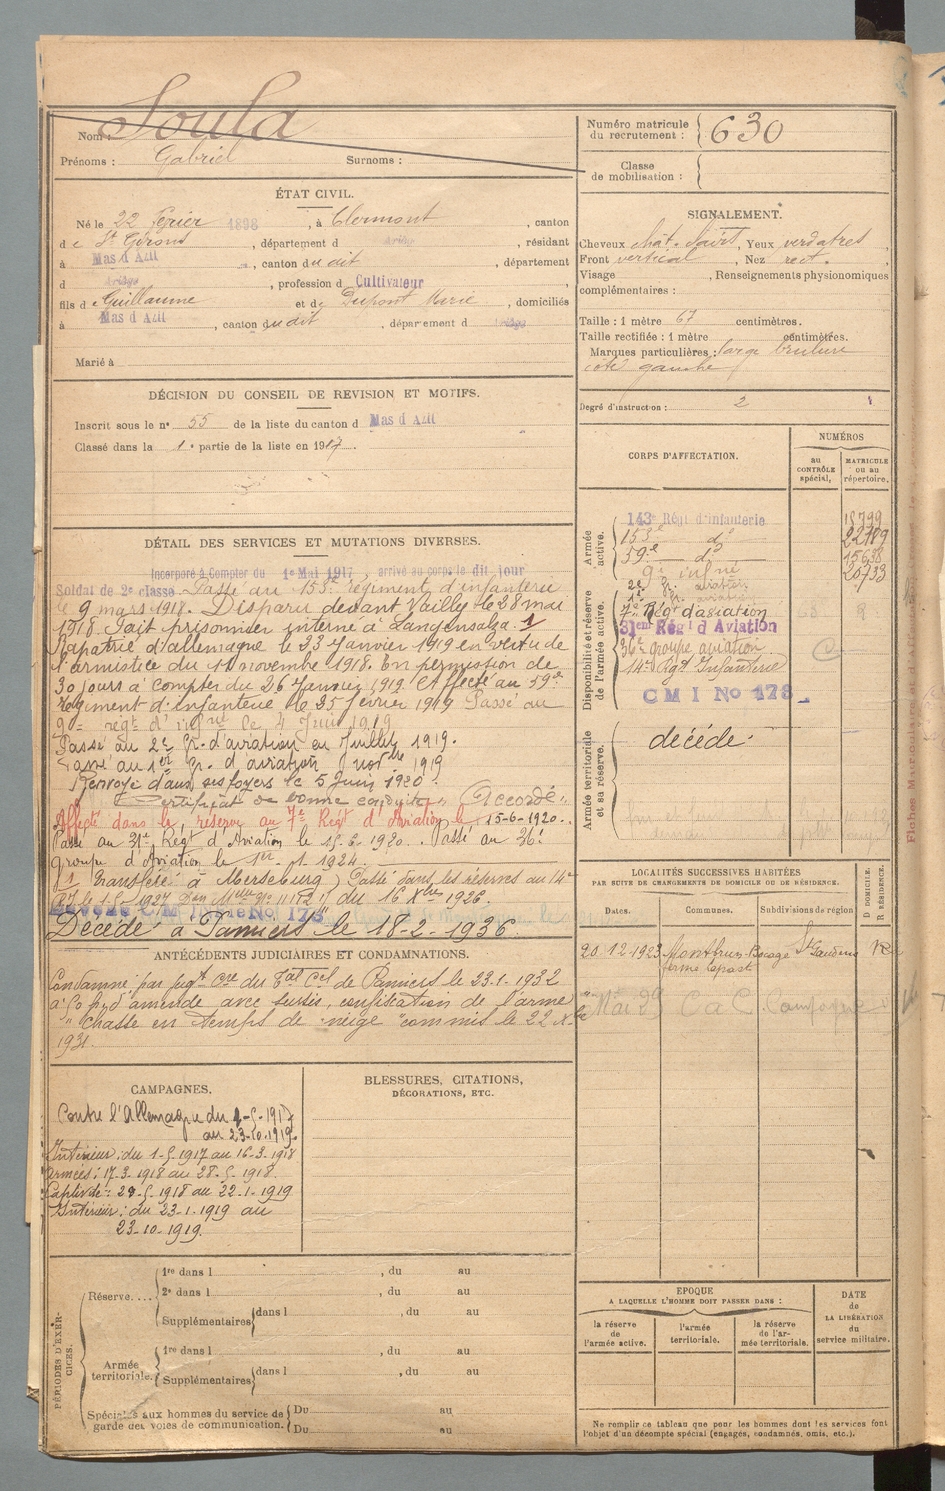 Nom : Soula
Prénoms : Gabriel Surnoms :
ÉTAT CIVIL.
Né le 22 Février 1898, à Clermont, canton
de St Girons, département d Ariège, résidant
à Mas d Azil, canton dudit, département
d Ariège, profession d Cultivateur,
fils de Guillaume et de Dupont Marie, domiciliés
à Mas d Azil, canton dudit, département d Ariège
Marié à
DÉCISION DU CONSEIL DE REVISION ET MOTIFS.
Inscrit sous le n° 55 de la liste du canton d Mas d Azil
Classé dans la 1e partie de la liste en 1917.
DÉTAIL DES SERVICES ET MUTATIONS DIVERSES.
Incorporé à Compter du 1er Mai 1917, arrivé au corps le dit jour
Soldat de 2e classe Passé au 158e régiment d'infanterie
le 9 mars 1918. Disparu devant Vailly le 28 mai
1918. Fait prisonnier interné à Langensalza. 1
Rapatrié d'allemagne le 23 Janvier 1919 en vertu de
l'armistice du 11 novembre 1918. En permission de
30 jours à compter du 26 Janvier 1919. Affecté au 59e
régiment d'infanterie le 25 février 1919 Passé au
9e régt d'infrie le 4 Juin 1919
Passé au 2e Gr. d'aviation en Juillet 1919.
Passé au 1er Gr. d'aviation novbre 1919
Renvoyé dans ses foyers le 5 Juin 1920.
Certificat de bonne conduite "Accordé"
Affecté dans la réserve au 7e Régt d'Aviation le 15-6-1920.
Passé au 31e Régt d'Aviation le 1920. Passé au 36e
groupe d'Aviation le 1er 1. 1924.
1 transféré à Merseburg) Passé dans les réserves au 14e
RI le 1-5-1927 du 16 Xbre 1926.
C M I No 178
Décédé à Pamiers le 18-2-1936.
ANTÉCÉDENTS JUDICIAIRES ET CONDAMNATIONS.
Condamné par jugt cre du Tal Cel de Pamiers le 23.1.1932
à 50 f d'amende avec sursis, confiscation de l'arme
"chasse en temps de neige" commis le 22 Xbre
1931.
CAMPAGNES.
Contre l'Allemagne du 1-5-1917
au 23-10-1919.
Intérieur : du 1-5-1917 au 16-3-1918
Armées : 17-3-1918 au 28-5-1918
Captivité : 29-5-1918 au 22-1-1919
Intérieur : du 23-1-1919 au
23-10-1919.
BLESSURES, CITATIONS,
DÉCORATIONS, ETC.
PÉRIODES D'EXERCICES.
Réserve.... 1re dans l , du au
2e dans l , du au
Supplémentaires dans l , du au
Armée territoriale. 1re dans l , du au
Supplémentaires dans l , du au
Spéciales aux hommes du service de Du au
garde des voies de communication. Du au
Numéro matricule
du recrutement : 630
Classe
de mobilisation :
SIGNALEMENT.
Cheveux chât. , Yeux verdatres,
Front vertical, Nez rect.,
Visage , Renseignements physionomiques
complémentaires :
Taille : 1 mètre 67 centimètres.
Taille rectifiée : 1 mètre centimètres.
Marques particulières : large brulure
côté gauche
Degré d'instruction : 2
CORPS D'AFFECTATION.
NUMÉROS
au
CONTRÔLE
spécial,
MATRICULE
ou au
répertoire.
Armée
active.
143e Régt d'infanterie 18799
158e do 22789
59e do 15638
9e infrie 20733
2e Gr. aviation
1er Gr. aviation
Disponibilité et réserve
de l'armée active.
7e Régt d'aviation
31eme Régt d Aviation
36e groupe aviation
14e Rgt Infanterie
C M I No 178
Armée territoriale
et sa réserve.
décédé.
LOCALITÉS SUCCESSIVES HABITÉES
PAR SUITE DE CHANGEMENTS DE DOMICILE OU DE RÉSIDENCE.
Dates. Communes. Subdivisions de région D DOMICILE. R RÉSIDENCE.
20.12.1923 Montbrun-Bocage St Gaudens
ferme
Mai 29
ÉPOQUE
A LAQUELLE L'HOMME DOIT PASSER DANS :
la réserve
de
l'armée active.
l'armée
territoriale.
la réserve
de l'armée territoriale.
DATE
de
LA LIBÉRATION
du
service militaire.
Ne remplir ce tableau que pour les hommes dont les services font
l'objet d'un décompte spécial (engagés, condamnés, omis, etc.).